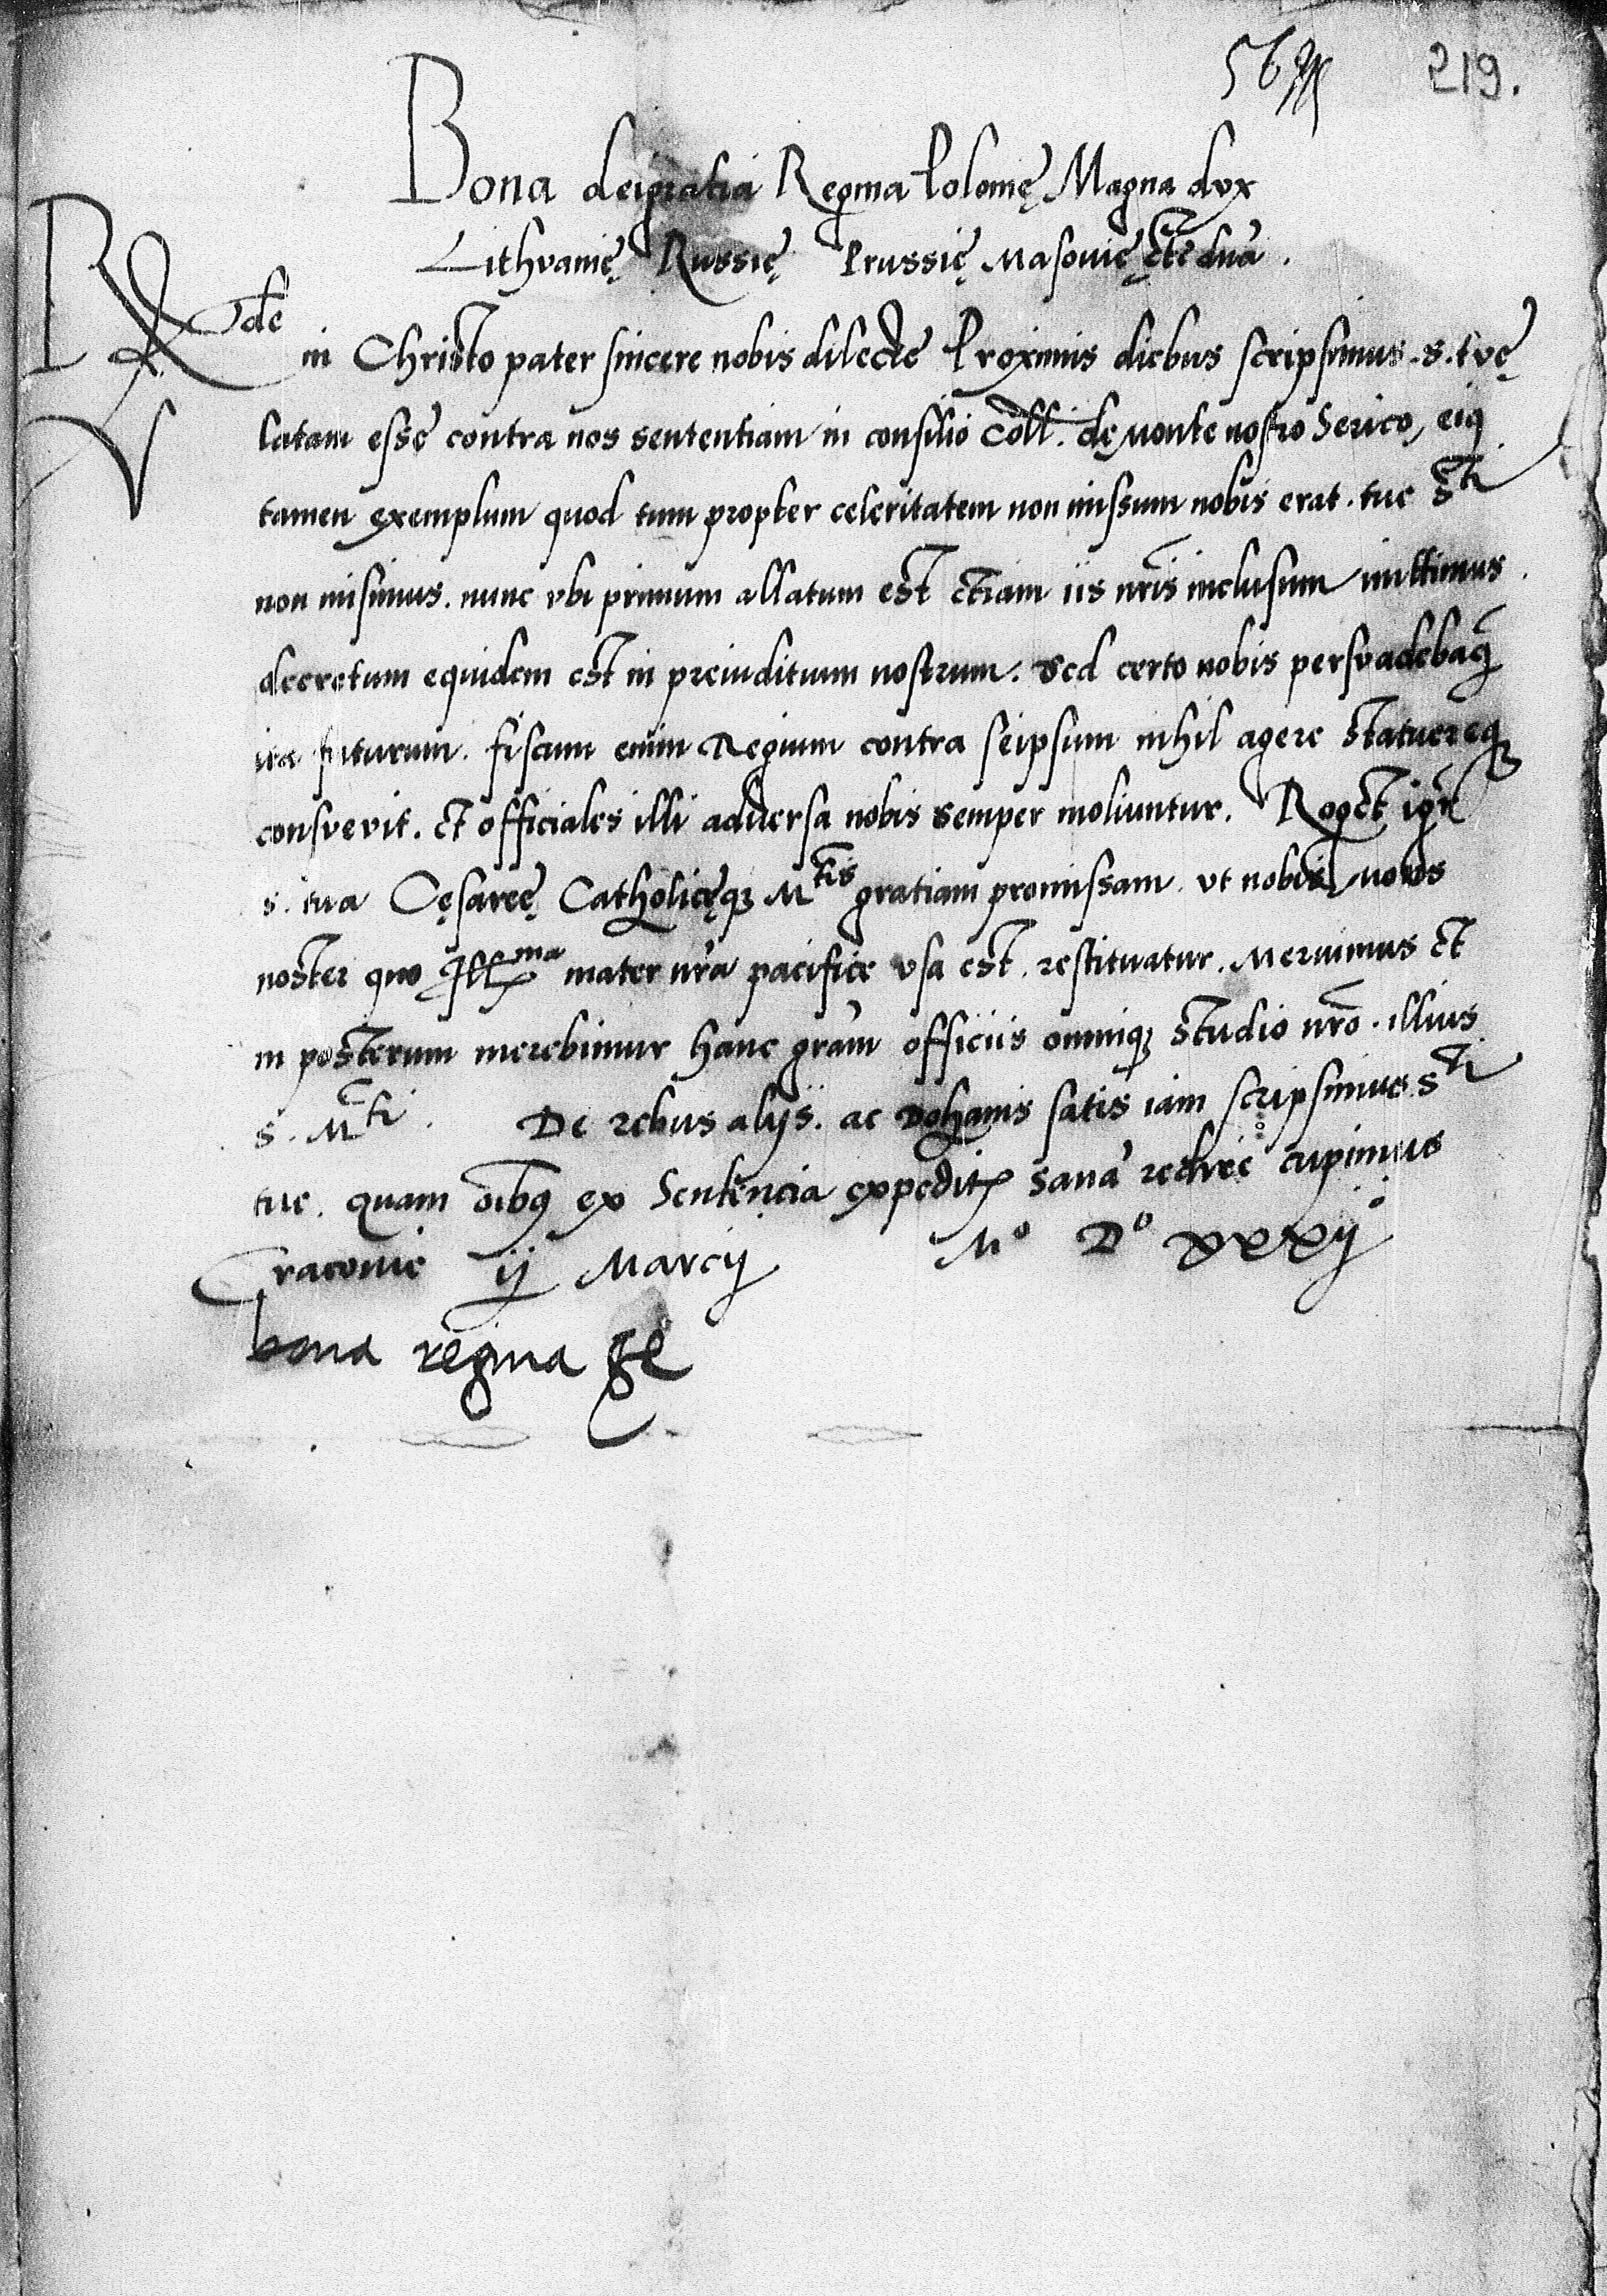 219.
Bona dei gratia Regina Polonię Magna dvx
Lithvanię Russię Prussię Masovię etc̄ dn̄a.
Rde
in Christo pater sincere nobis dilecte Proximis diebus scripsimus. s. tvę
latam esse contra nos sententiam in consilio Coll. de Monte nostro Serico, eiꝯ
tamen exemplum quod tum propter celeritatem non missum nobis erat. tue Sti
non misimus. nunc vbi primum allatum est etiam iis nr̄is inclusum mittimus.
decretum equidem est in preiuditium nostrum. Sed certo nobis persvadebaꝫ
ita futurum. fiscum enim Regium contra seipsum nihil agere statuereqꝫ
consvevit. et officiales illi adversa nobis semper moliuntur. Roget igr̄
s. tua Cęsareę Catholicęqꝫ Mtis gratiam promissam. vt nobis Mons
noster quo Illma mater nr̄a pacifice vsa est. restituatur. Meruimus et
in posterum merebimur hanc gr̄am officiis omniqꝫ studio nr̄o. illius
s. Mti. De rebus alijs. ac Dohanis satis iam scripsimus Sti
tue. quam oībꝯ ex Sentencia expedit sanā redire cupimus
Cracovie ij Marcij Mo Do xxxij°
bona regina